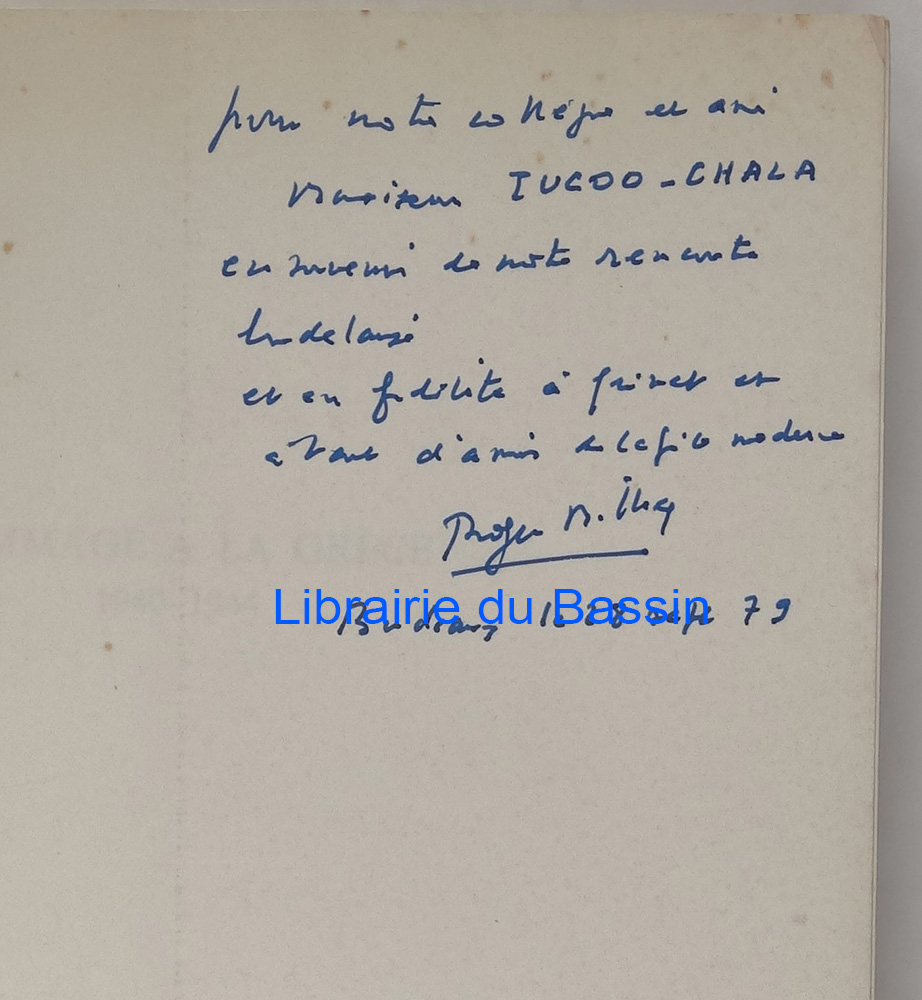 pour notre collègue et ami
Monsieur TUCOO-CHALA
en souvenir de notre rencontre
bordelaise
et en fidélité à et
à tant d'amis de la Grèce moderne
Roger Milliex
Bordeaux le 28 sept 79
Librairie du Bassin
MMAGE A LA GRÈCE